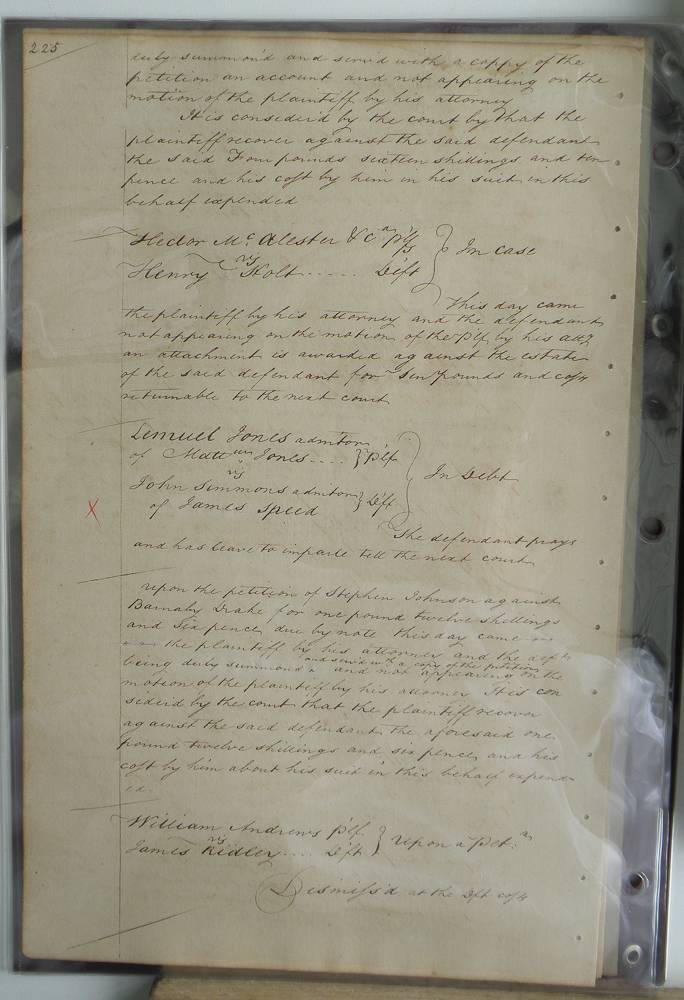 225
duly summon'd and serv'd with a coppy of the
petition an account and not appearing on the
motion of the plaintiff by his attorney
It is consider'd by the court by that the
plaintiff recover against the said defendant
the said Four pounds sixteen shillings and ten
pence and his cost by him in his suit in this
behalf expended
Hector Mc Alester & Ca plfs
vs
Henry Holt ..... Deft
In case
This day came
the plaintiff by his attorney and the defendant
not appearing on the motion of the Plf. by his atty
an attachment is awarded against the estate
of the said defendant for Ten pounds and cost
returnable to the next court
Lemuel Jones admitor
of Matt:ew Jones .... Plf
vs
John Simmons admitor
of James Speed Deft
In Debt
The defendant prays
and has leave to imparle tell the next court
X
upon the petition of Stephen Johnson against
Barnaby Drake for one pound twelve shellings
and Six pence, due by note this day came
the plaintiff by his attorney and the deft
and serv'd with a copy of the petition
being duly summond and not appearing on the
motion of the plaintiff by his attorney It is con
siderd by the court that the plaintiff recover
against the said defendant the aforesaid one
pound twelve shillings and six pence, and his
cost by him about his suit in this behalf expend
ed.
William Andrews Plf.
vs
James Ridley .... Deft
upon a Pet:n
Dismiss'd at the Dft cost